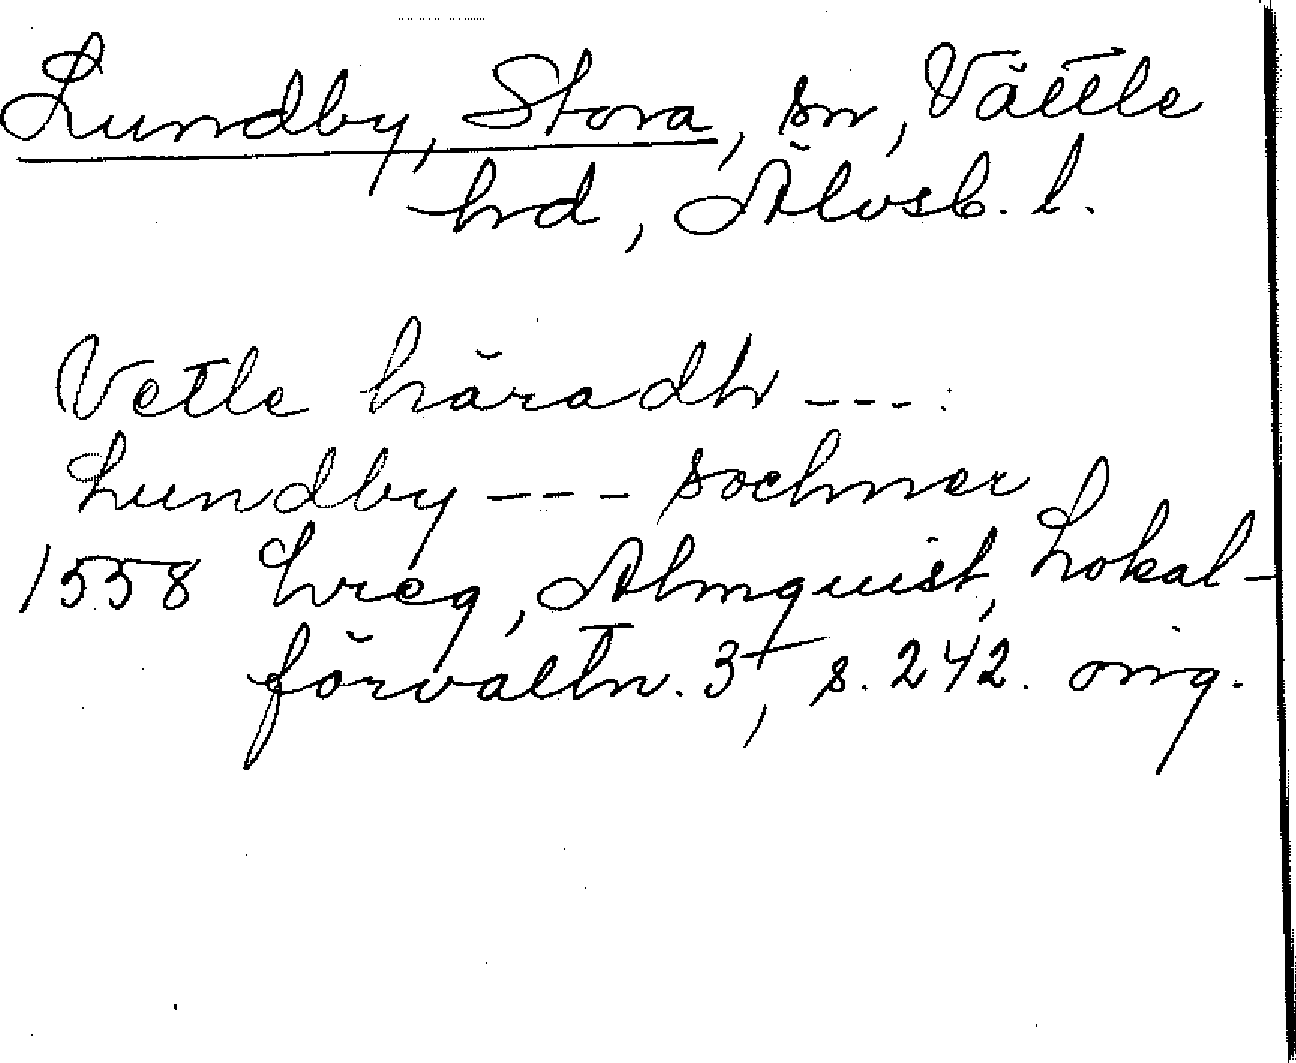 Lundby, Stora, sn, Vättle
hd, Älvsb. l.
Vetle häradh ---.
Lundby --- sochner
1558 Lreg, Almquist, Lokal-
förvaltn. 3, s. 242. orig.